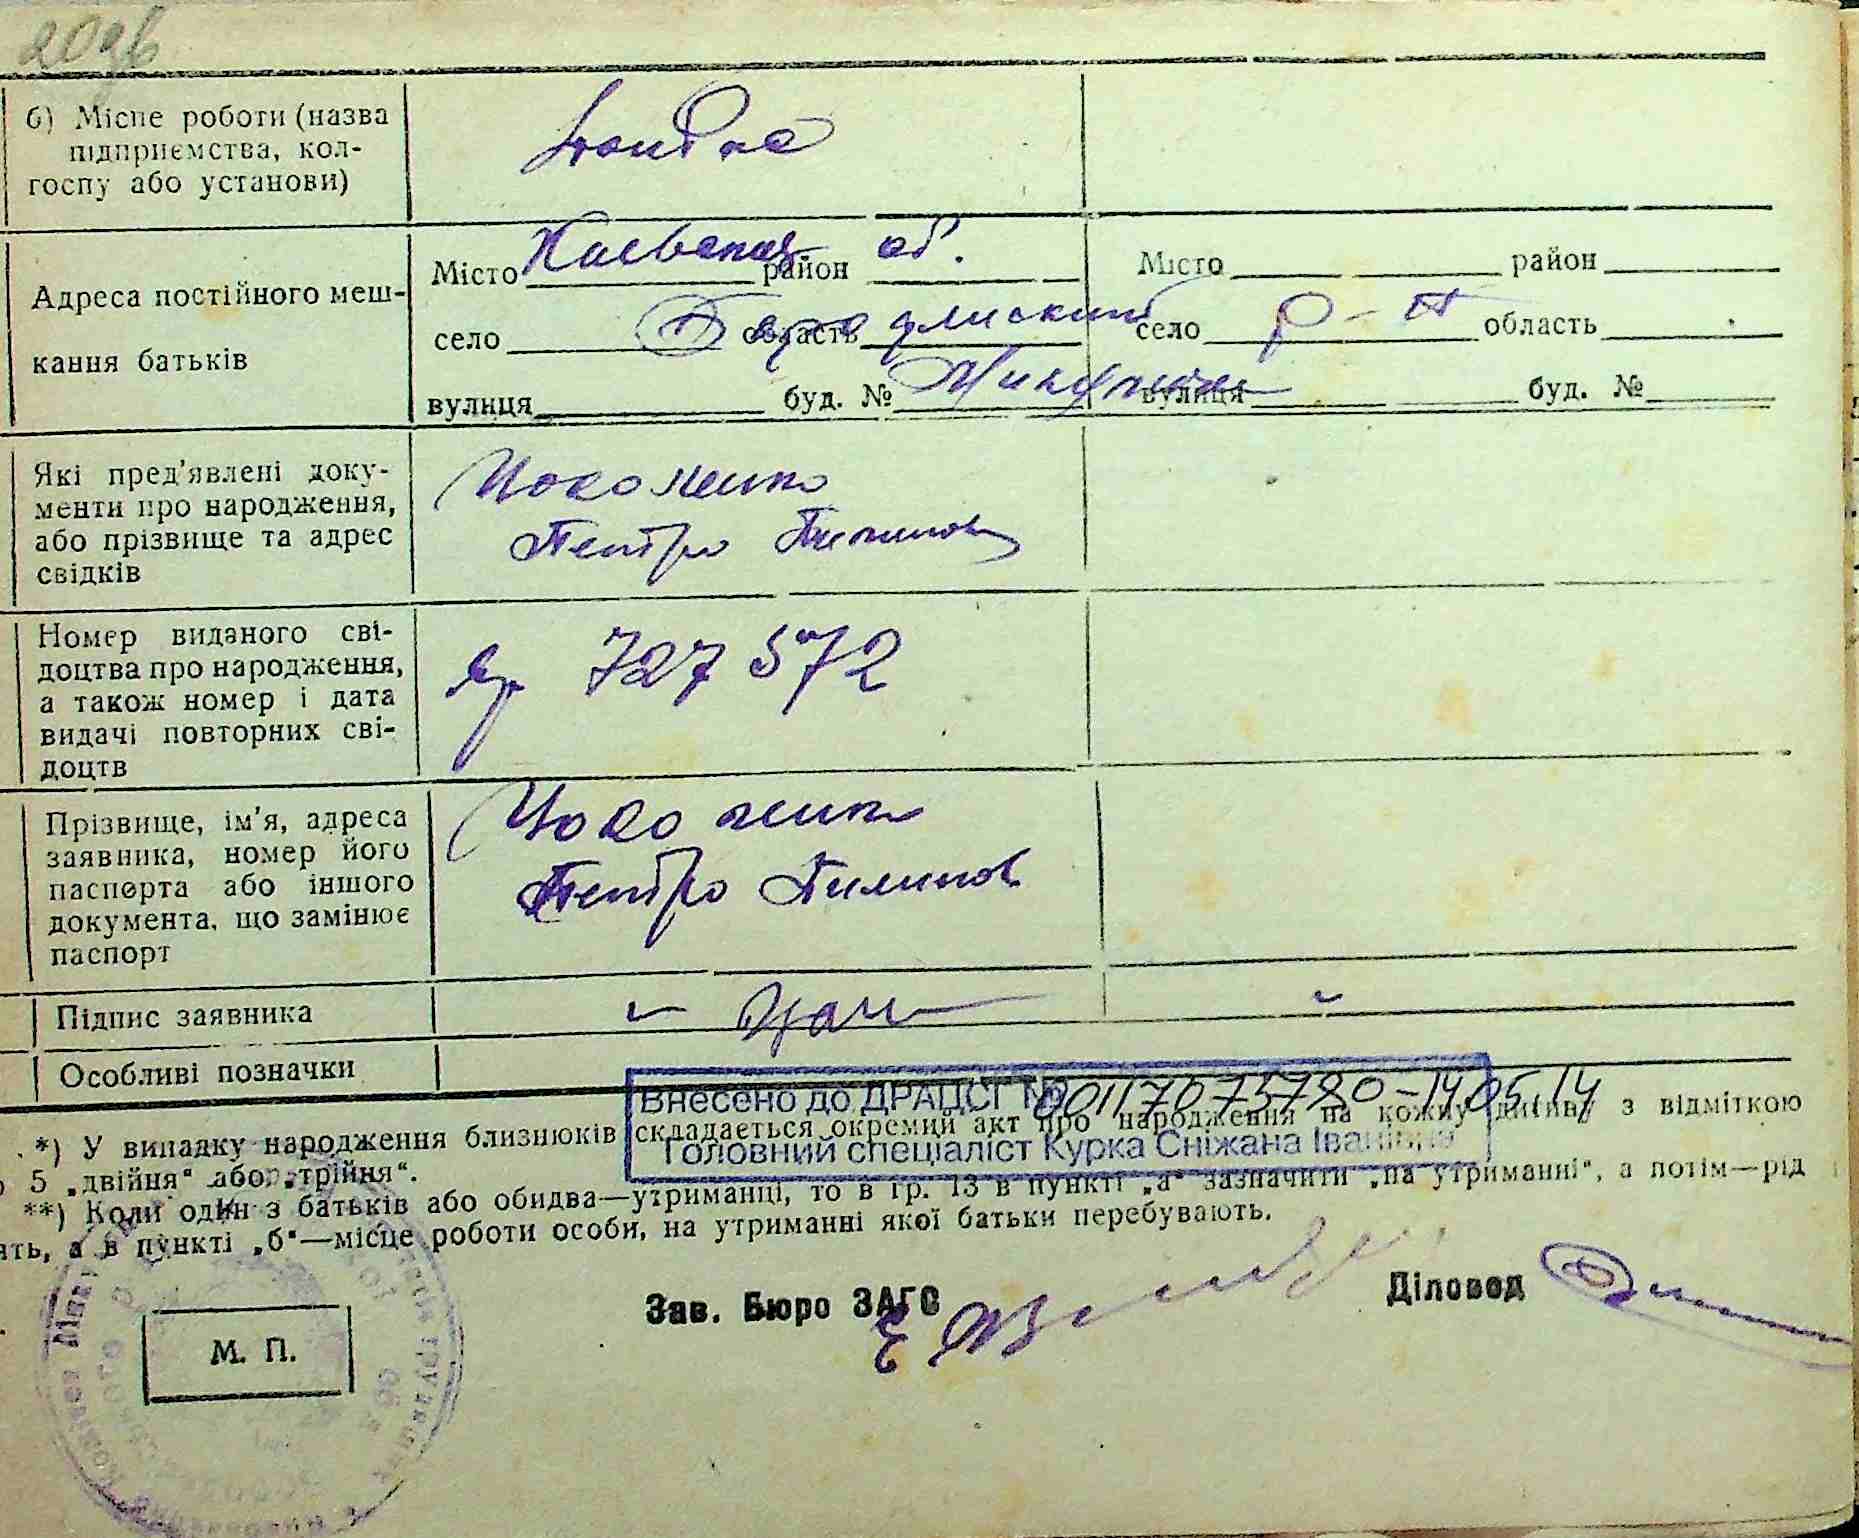 209б
б) Місце роботи (назва
підприємства, кол-
госпу або установи)
Адреса постійного меш-
кання батьків
Місто Київська район об.
село область Бородянский
вулиця буд. №
Місто район
село р-н область
вулиця буд. №
Які пред'явлені доку-
менти про народження,
або прізвище та адрес
свідків
Петро Пилипов
Номер виданого сві-
доцтва про народження,
а також номер і дата
видачі повторних сві-
доцтв
727572
Прізвище, ім'я, адреса
заявника, номер його
паспорта або іншого
документа, що замінює
паспорт
Петро Пилипов
Підпис заявника
Особливі позначки
Внесено до ДРАЦСГ № 00117075780-14.05.14
Головний спеціаліст Курка Сніжана Іванівна
*) У випадку народження близнюків складається окремий акт про народження на кожну дитину з відміткою
5 „двійня“ або „трійня“.
**) Коли один з батьків або обидва—утриманці, то в гр. 13 в пункті „а“ зазначити „на утриманні“, а потім—рід
ять, а в пункті „б“—місце роботи особи, на утриманні якої батьки перебувають.
Зав. Бюро ЗАГС
Діловод
М. П.